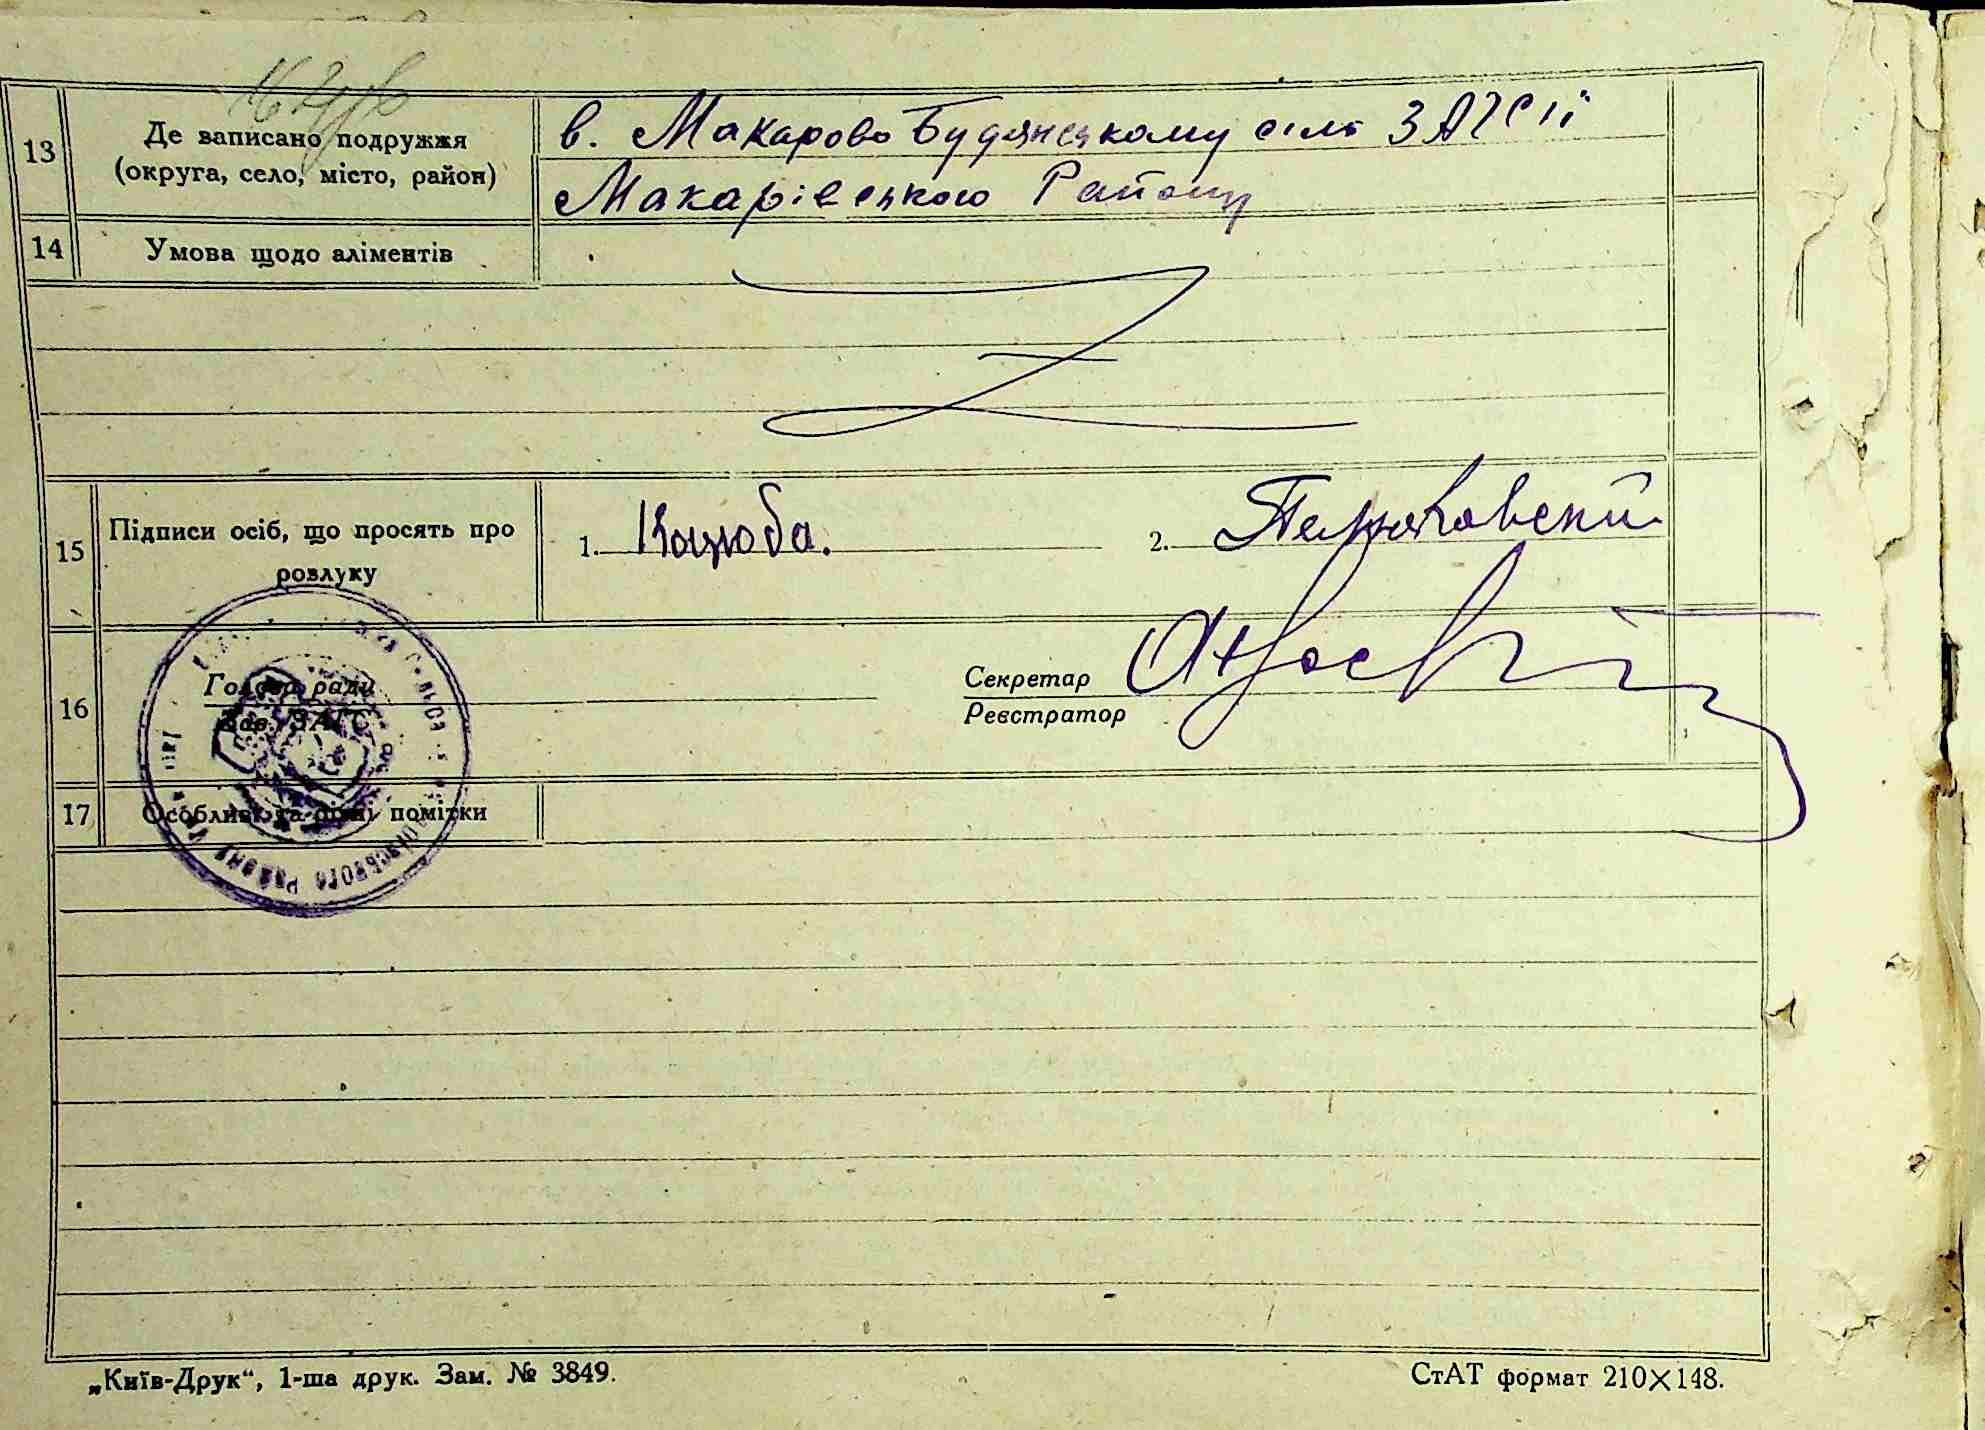 13
Де записано подружжя
(округа, село, місто, район)
в. Макарово Будянському сіль ЗАГСІї
Макарівського Району
14
Умова щодо аліментів
15
Підписи осіб, що просять про
розлуку
1. Коцюба.
2.
16
Голова ради
Зав. ЗАГС
Секретар
Реєстратор
17
Особливі та різні помітки
„Київ-Друк“, 1-ша друк. Зам. № 3849.
СтАТ формат 210×148.